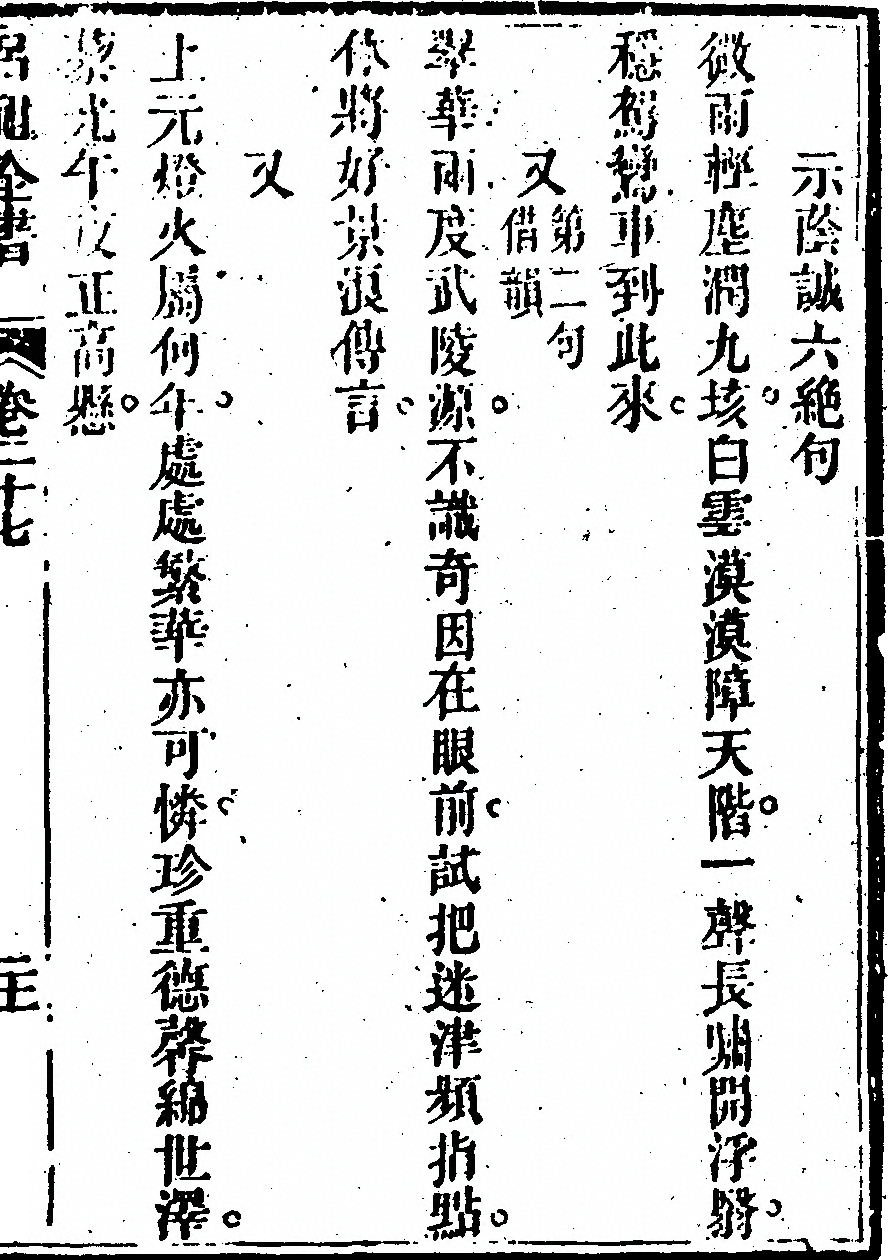 示蔭誠六絶句
微雨輕塵潤九垓白雲漠漠障天階一聲長嘯開浮翳
穩駕鸞車到此來
又第二句借韻
翠華雨度武陵源不識奇因在眼前試把迷津頻指點
休將好景浪傳言
又
上元燈火屬何年處處繁華亦可憐珍重德馨綿世澤
藜光午夜正高懸
呂祖全書 卷二十七 二王